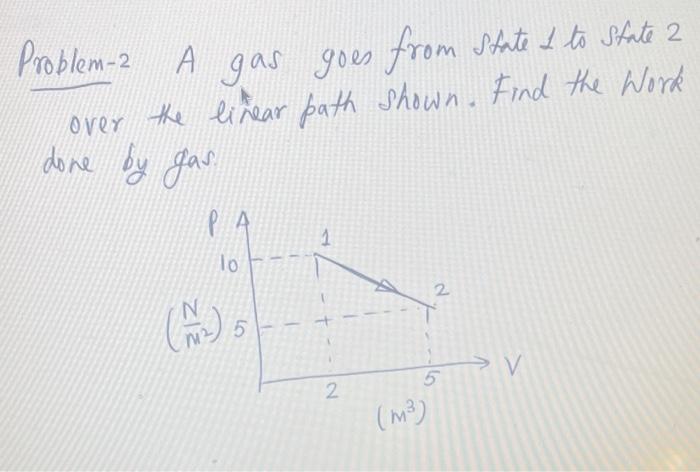 Problem-2 A gas goes from state 1 to state 2
over the linear path shown. Find the Work
done by gas.
P
1
10
2
(N/m²) 5
V
2 5
(m³)